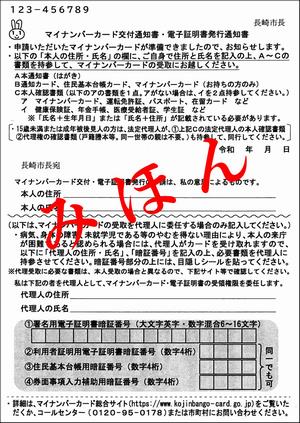 123-456789
長崎市長
マイナンバーカード交付通知書・電子証明書発行通知書
・申請いただいたマイナンバーカードが準備できましたので、お知らせします。
・以下の「本人の住所・氏名」の欄に、ご自身で住所と氏名を記入の上、A～Cの
書類を持参して、マイナンバーカードの受取にお越しください。
A 本通知書（はがき）
B 通知カード、住民基本台帳カード、マイナンバーカード（お持ちの方のみ）
C 本人確認書類（以下のアの書類を1点。アがない場合は、イを2点持参してください。）
ア マイナンバーカード、運転免許証、パスポート、在留カード など
イ 健康保険証、年金手帳、医療受給者証、学生証 など
※「氏名＋生年月日」または「氏名＋住所」が記載されている必要があります。
・15歳未満または成年被後見人の方は、法定代理人が、①上記Cの法定代理人の本人確認書類
②代理権の確認書類（戸籍謄本等。同一世帯の親は不要。）も持参して、同行してください。
令和 年 月 日
長崎市長宛
マイナンバーカード交付・電子証明書発行の
は、私の意
によるものです。
本人の住所
本人の
みほん
（以下は、マイナンバーカードの受取を代理人に委任する場合のみ記入してください。）
・病気、身体の障害、未就学児である等のやむを得ない理由により、本人の来庁
が困難であると認められる場合には、代理人がカードを受け取れますので、
以下に「代理人の住所・氏名」、「暗証番号」を記入の上、必要書類を代理人に
持参させてください。暗証番号部分の上には、目隠しシールを貼ってください。
※代理受取に必要な書類は、本人受取の場合と異なるので、下記サイト等で確認してください。
私は下記の者を代理人として、マイナンバーカード・電子証明書の受領権限を委任します。
代理人の住所
代理人の氏名
①署名用電子証明書暗証番号（大文字英字・数字混合6～16文字）
②利用者証明用電子証明書暗証番号（数字4桁）
③住民基本台帳用暗証番号（数字4桁）
④券面事項入力補助用暗証番号（数字4桁）
同一でも可
・詳細は、マイナンバーカード総合サイト（https://www.kojinbango-card.go.jp）をご覧いた
だくか、コールセンター（0120-95-0178）または市町村にお問い合わせください。